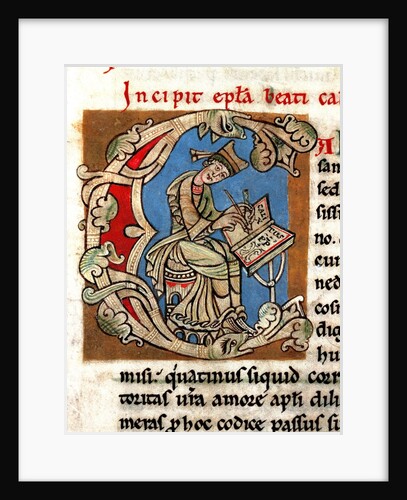 Incipit epła beati ca
A
san
sed
sissi
no.
eun
ned
cosi
dig
hu
misi. qãtinus siquid corr
toritas ur̃a amore apłi
meras p hoc codice passus